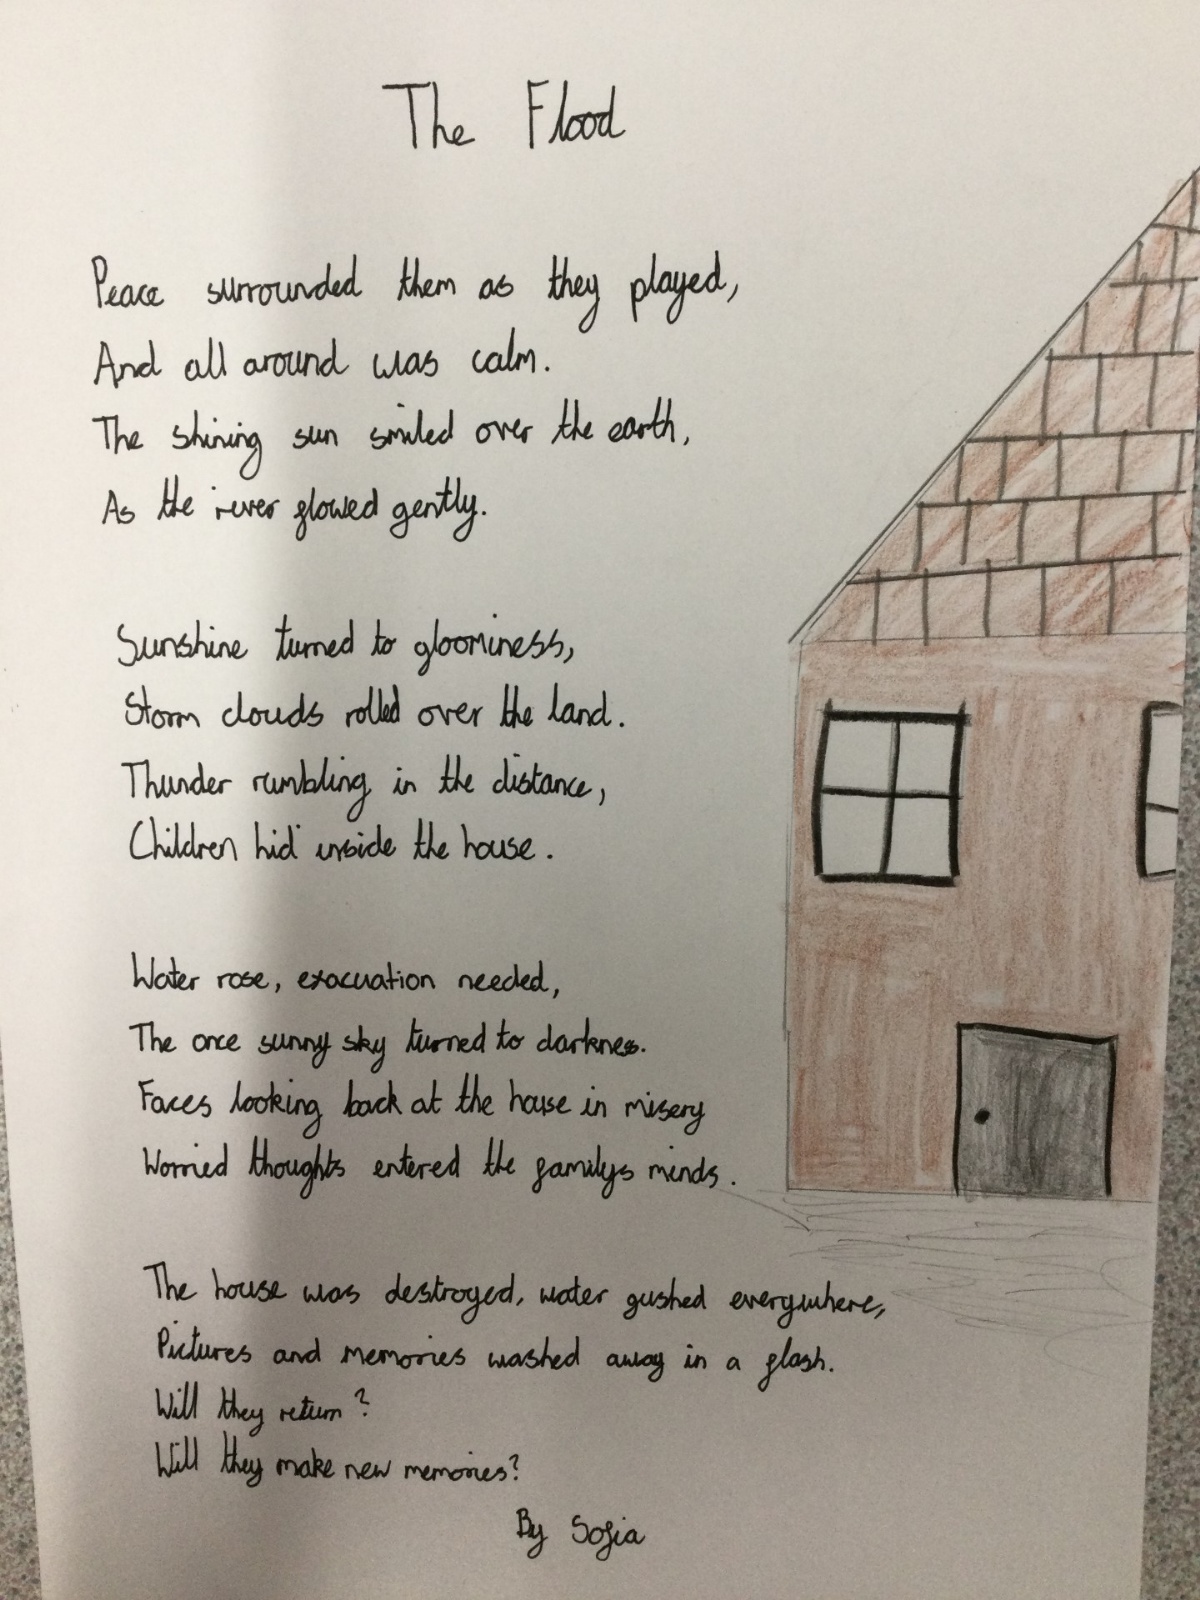 The Flood
Peace surrounded them as they played,
And all around was calm.
The shining sun smiled over the earth,
As the river flowed gently.
Sunshine turned to gloominess,
Storm clouds rolled over the land.
Thunder rumbling in the distance,
Children hid inside the house.
Water rose, exacuation needed,
The once sunny sky turned to darkness.
Faces looking back at the house in misery
Worried thoughts entered the familys minds.
The house was destroyed, water gushed everywhere,
Pictures and memories washed away in a flash.
Will they return?
Will they make new memories?
By Sofia